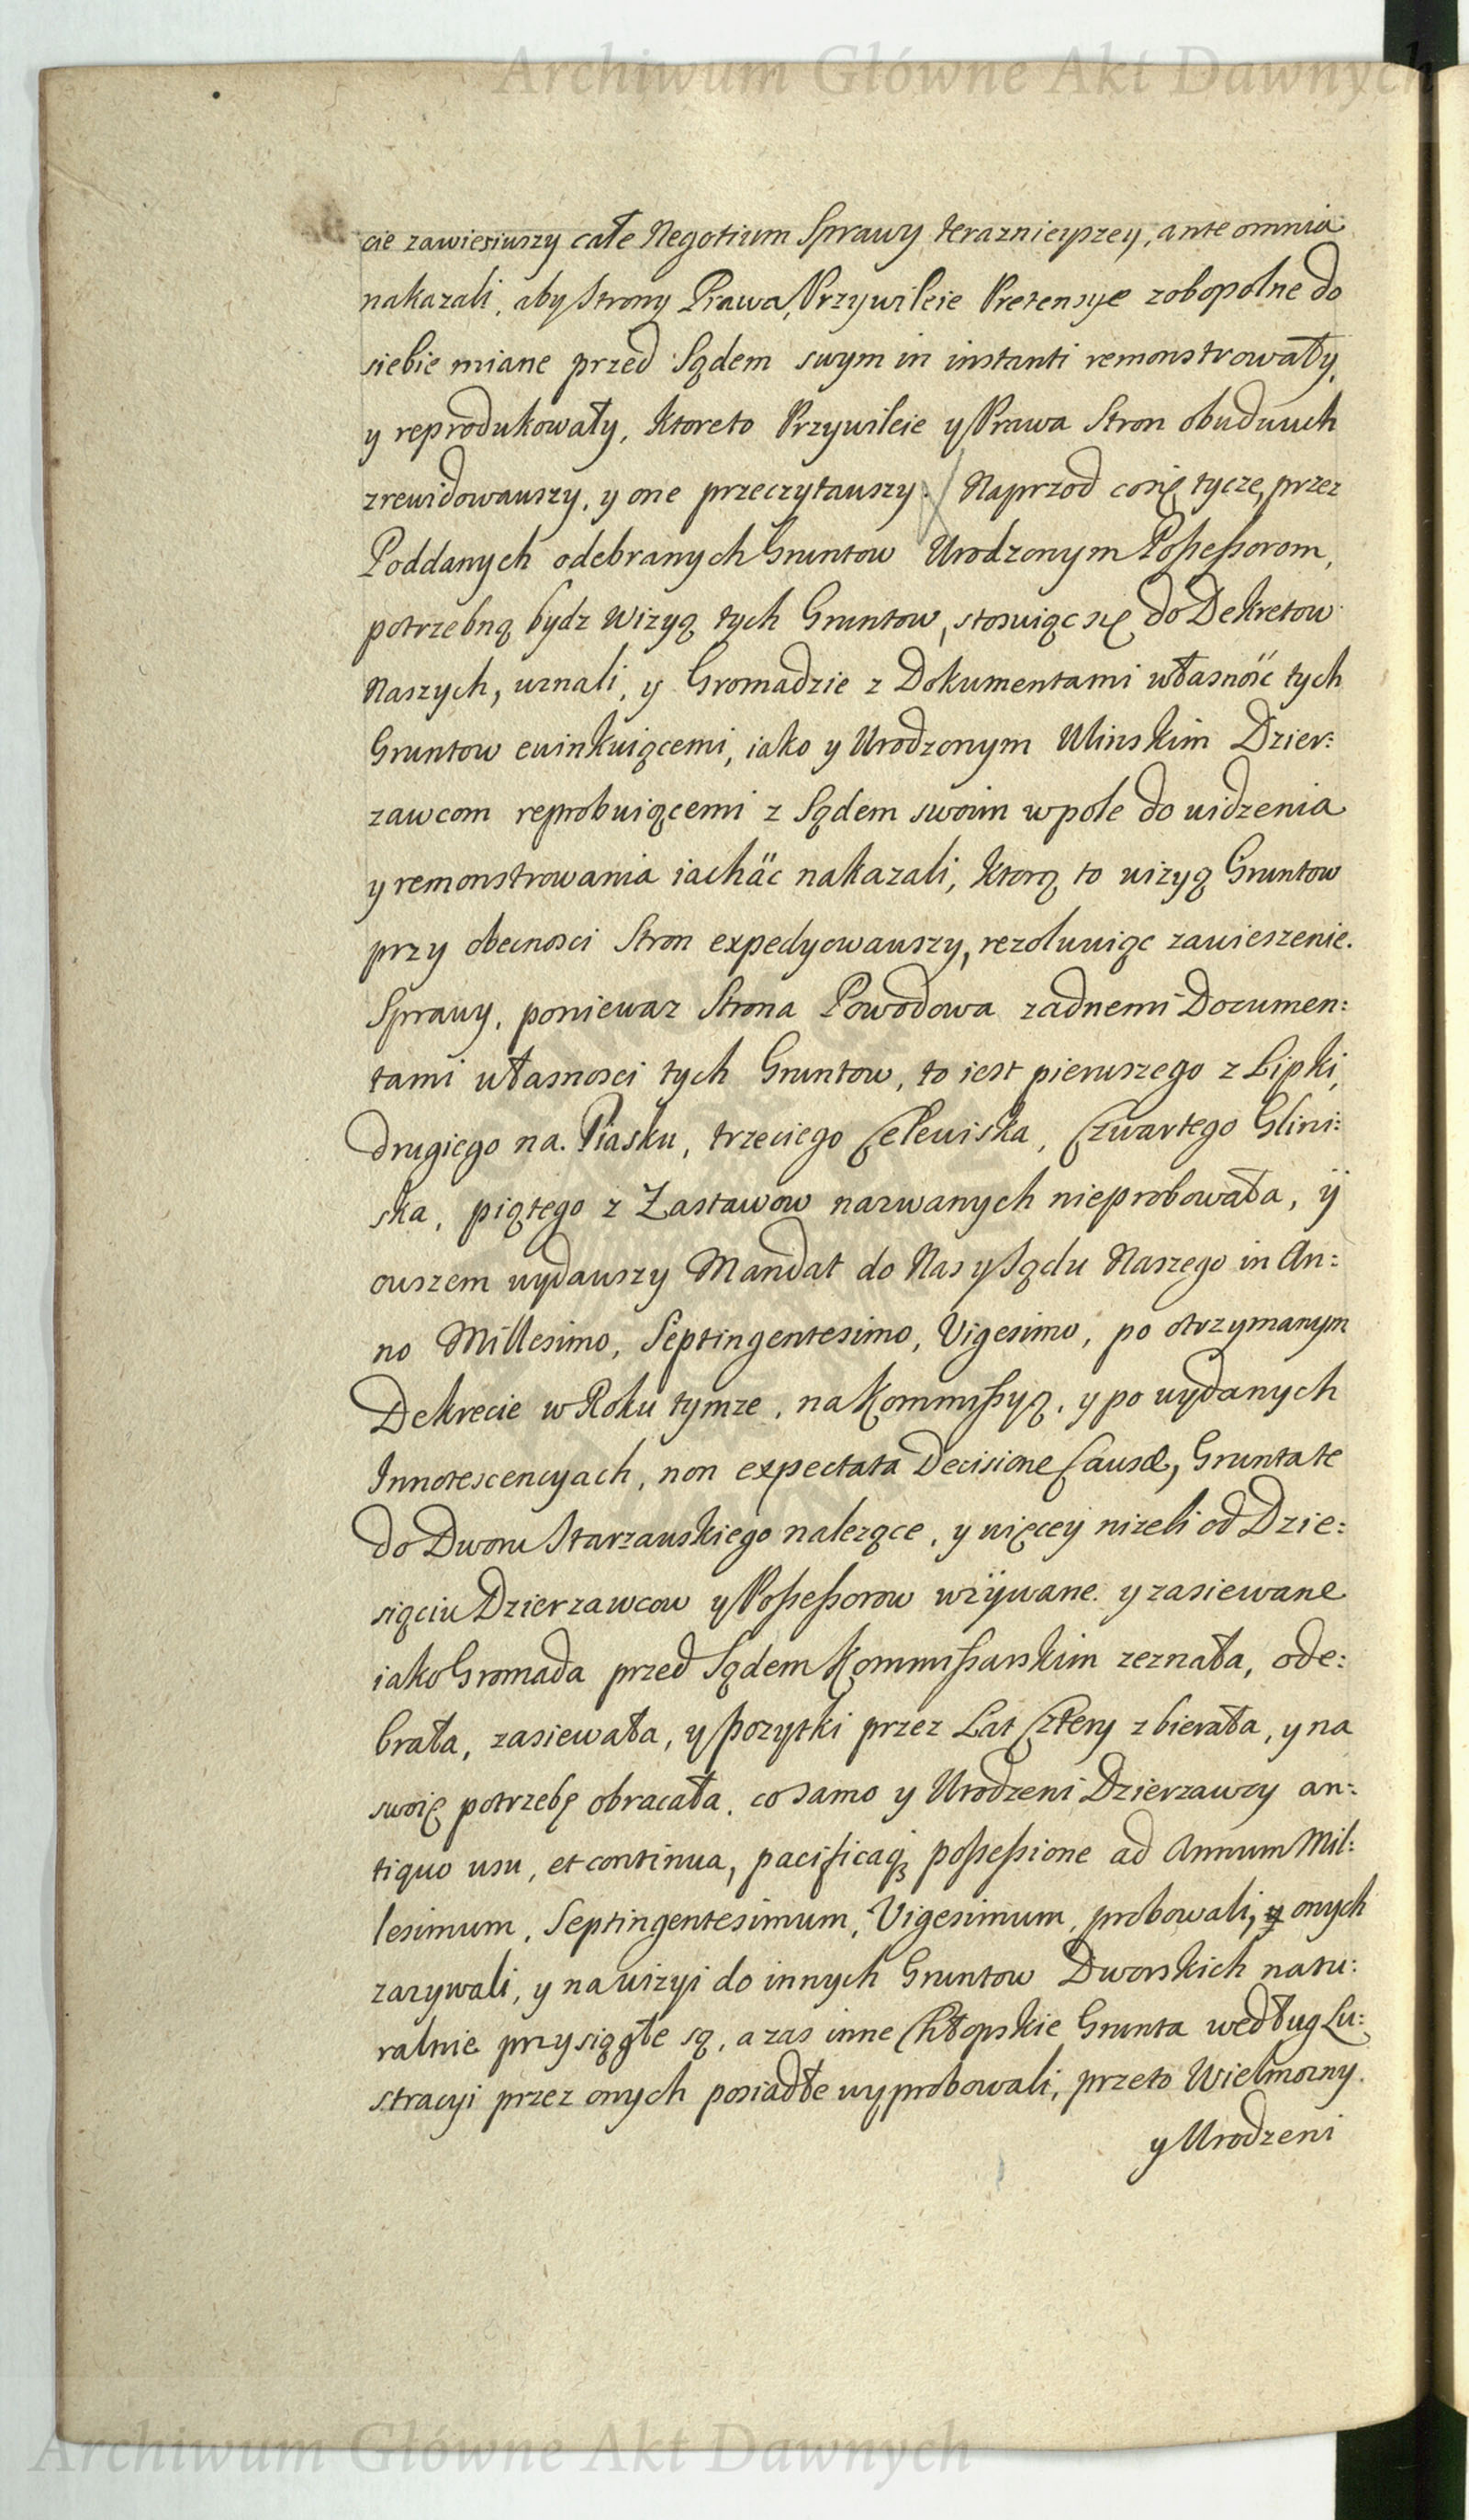 Archiwum Główne Akt Dawnych
cie zawiesiwszy całe Negotium Sprawy teraznieyszey, ante omnia
nakazali, aby Strony Prawa, Przywileie Pretensye zobopolne do
siebie miane przed Sądem swym in instanti remonstrowały,
y reprodukowały, Ktoreto Przywileie y Prawa Stron obudwuch
zrewidowawszy, y one przeczytawszy. Naprzod cosię tycze, przez
Poddanych odebranych Gruntow Urodzonym Possessorom,
potrzebną bydz Wizyą tych Gruntow, stosuiąc się do Dekretow
Naszych, uznali, y Gromadzie z Dokumentami własność tych
Gruntow ewinkuiącemi, iako y Urodzonym Ulinskim Dzier:
zawcom reprobuiącemi z Sądem swoim w pole do widzenia
y remonstrowania iachäc nakazali, Ktorą to wizyą Gruntow
przy obecnosci Stron expedyowawszy, rezolwuiąc zawieszenie.
Sprawy, poniewaz Strona Powodowa zadnemi Documen:
tami własnosci tych Gruntow, to iest pierwszego z Lipki,
drugiego na Piasku, trzeciego Celewiska, Czwartego Glini:
ska, piątego z Zastawow nazwanych nieprobowała, ÿ
owszem wydawszy Mandat do Nas y Sądu Naszego in An:
no Millesimo, Septingentesimo, Vigesimo, po otrzymanym
Dekrecie w Roku tymze, na Kommissyą, y po wydanych
Innotescencyach, non expectata Decisione Causæ, Grunta te
do Dworu Starzawskiego nalezące, y więcey nizeli od Dzie:
siąciu Dzierzawcow y Possessorow wzÿwane y zasiewane
iako Gromada przed Sądem Kommissarskim zeznała, ode:
brała, zasiewała, y pozytki przez Lat Cztery zbierała, y na
swoię potrzebę obracała, co samo y Urodzeni Dzierzawcy an:
tiquo usu, et continua, pacificaq; possessione ad Annum Mil:
lesimum, Septingentesimum, Vigesimum, probowali, y onych
zazywali, y na wizyi do innych Gruntow Dworskich natu:
ralnie przysiągłe są, a zas inne Chłopskie Grunta według Lu:
stracyi przez onych posiadłe wyprobowali, przeto Wielmozny
y Urodzeni
Archiwum Główne Akt Dawnych